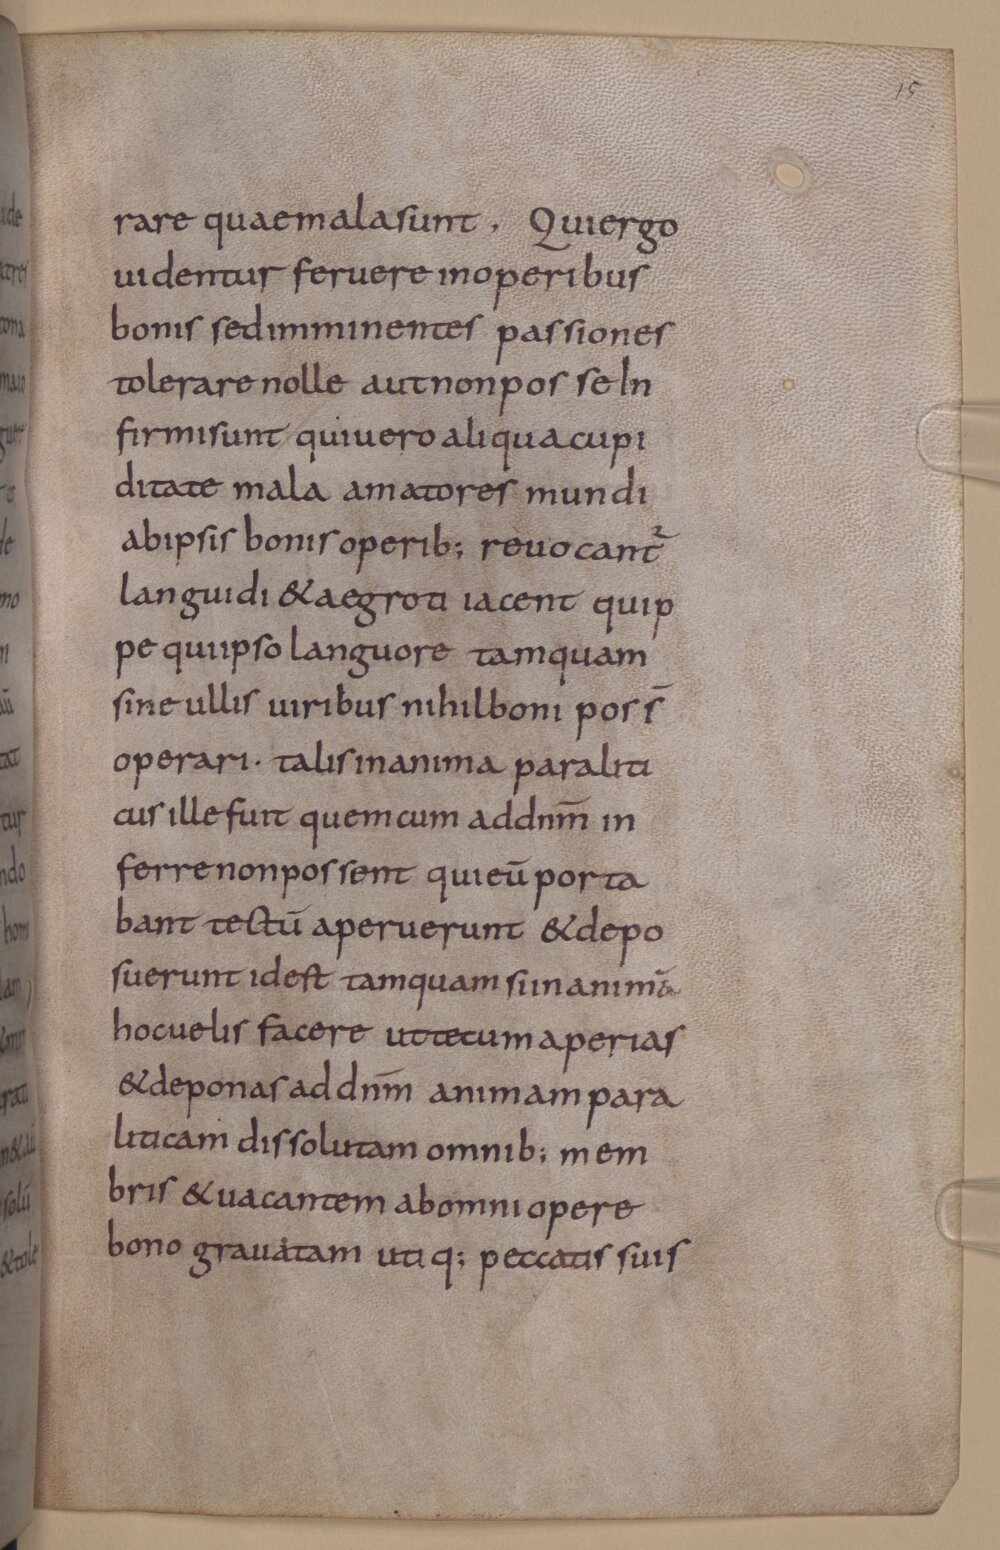 15
rare quae mala sunt. Qui ergo
uidentur feruere in operibus
bonis sed imminentes passiones
tolerare nolle aut non posse In
firmi sunt qui uero aliqua cupi
ditate mala amatores mundi
ab ipsis bonis operib; reuocantʳ
languidi & aegroti iacent quip
pe qui ipso languore tamquam
sine ullis uiribus nihil boni poss̄
operari. talis in anima paraliti
cus ille fuit quem cum ad dnm̄ in
ferre non possent qui eū porta
bant tectū aperuerunt & depo
suerunt id est tamquam si in animā
hoc uelis facere ut tectum aperias
& deponas ad dnm̄ animam para
liticam dissolutam omnib; mem
bris & uacantem ab omni opere
bono grauatam utiq; peccatis suis